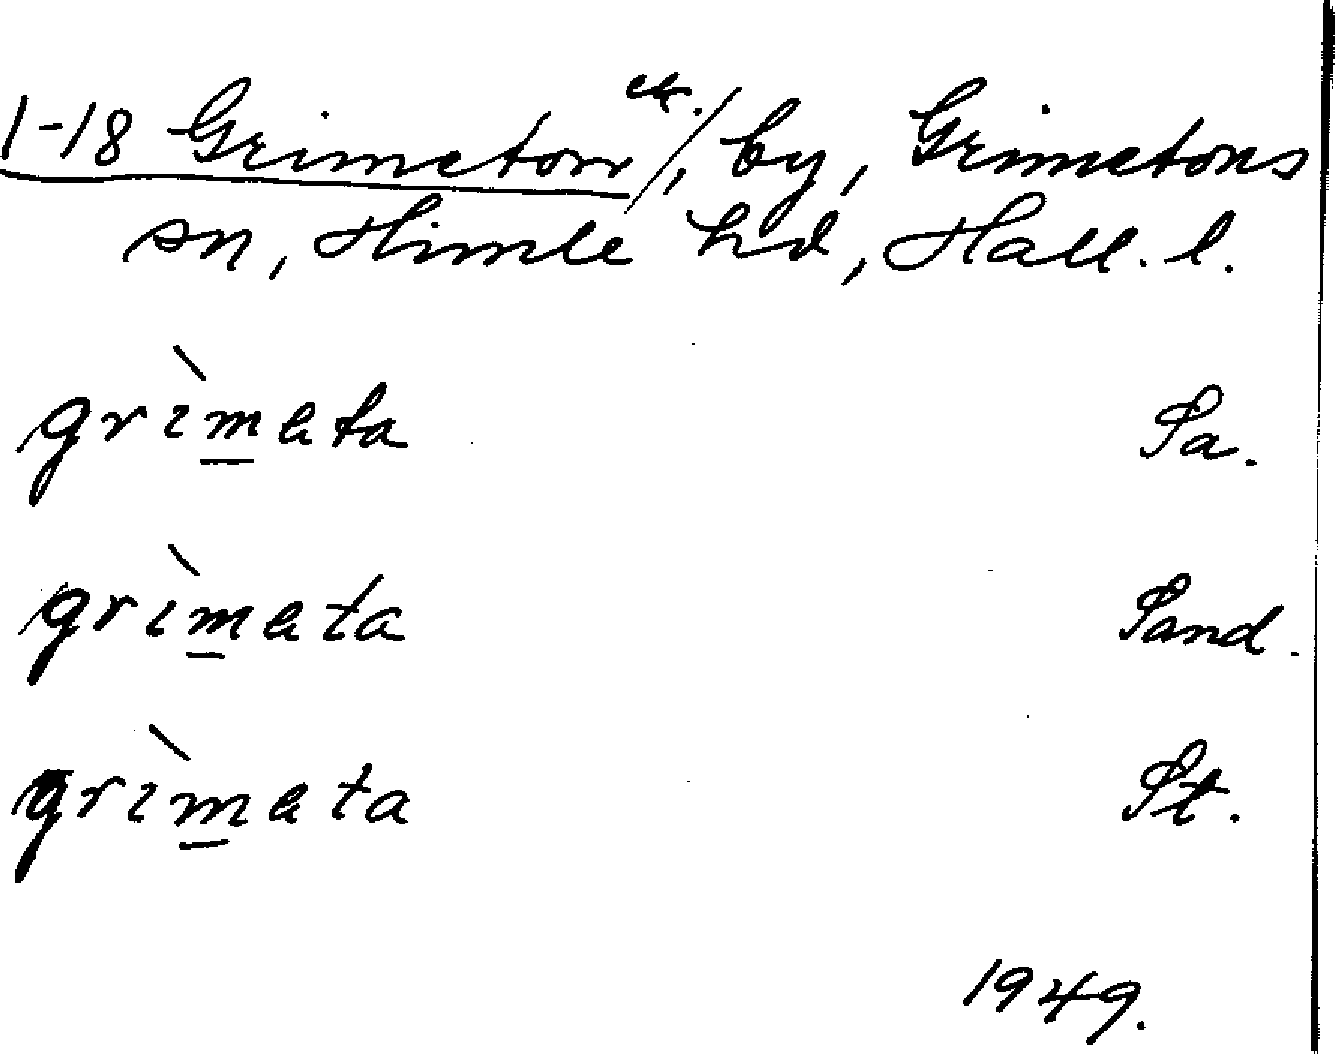 1-18 Grimeton ek./, by, Grimetons
sn, Himle hd, Hall. l.
grı̀m̲ata Sa.
grı̀m̲ata Sand.
grı̀m̲ata St.
1949.